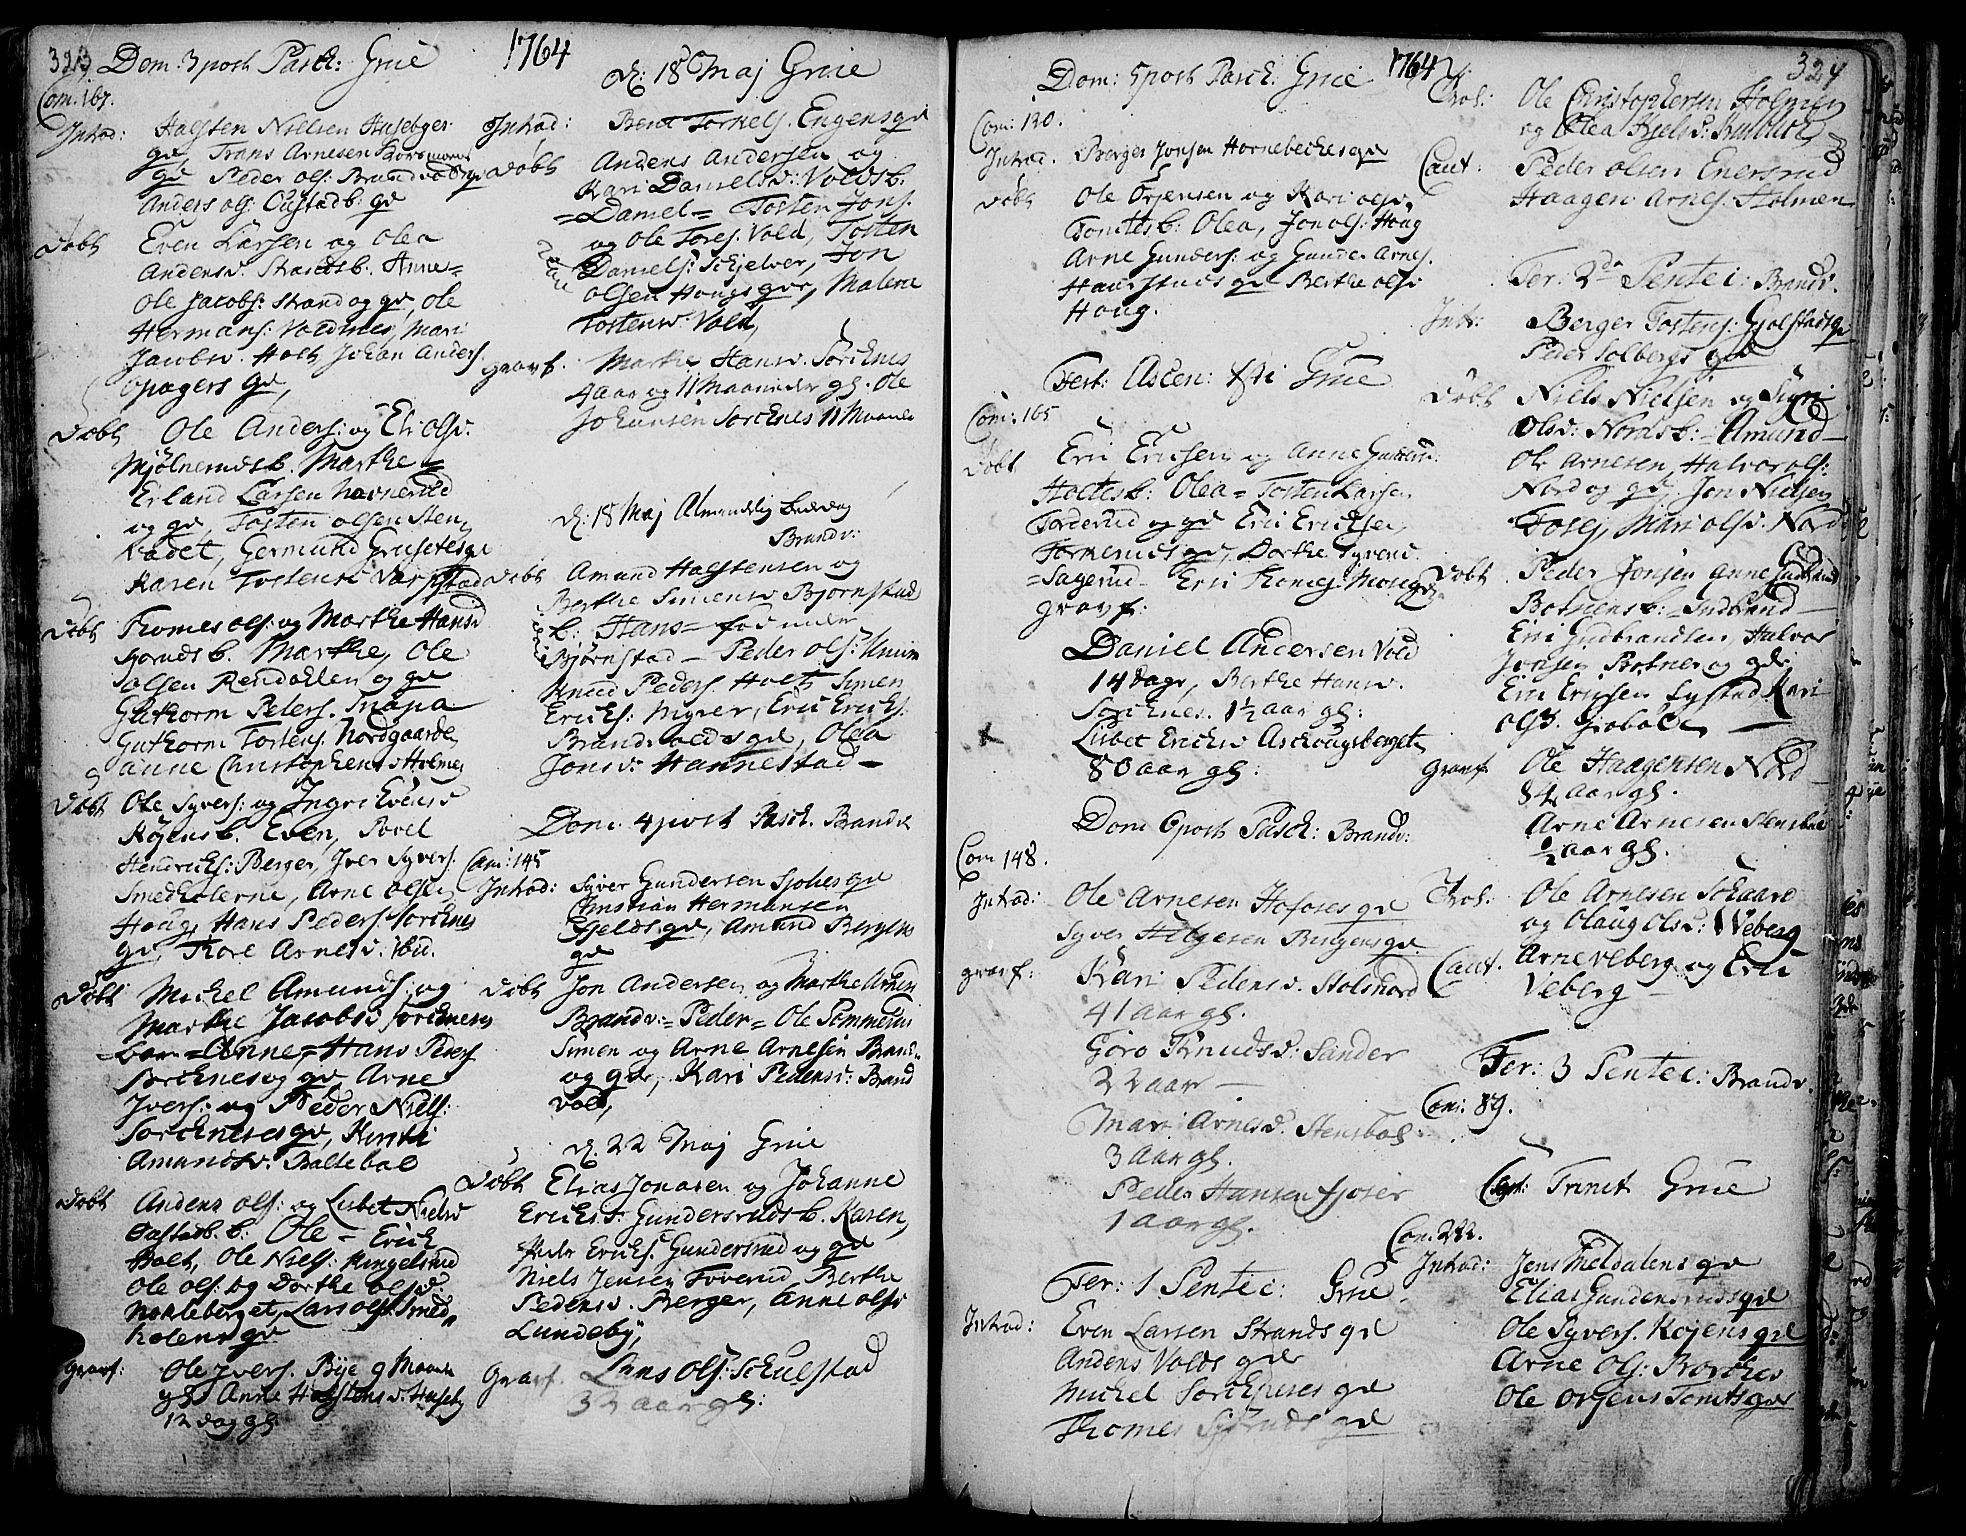 323
Dom: 3 post Pasch: Grue
1764
Com: 167.
Introd: Halsten Nielsen Huseby
gvi Frans Arnesen
gvi Peder Ols: Brandvold gvi
Anders Ols: Oustadb: gvi
Døbt Even Larsen og Olea
Andersd. Strandsb. Anne=
Ole Jacobs: Strand og gvi, Ole
Hermans: Voldnes, Mari
Jacobsd. Holt Johan Anders
Opagers gvi,
Døbt Ole Anders: og Eli Olsd.
Mjølnerudsb. Marthe=
Erland Larsen
og gvi, Tosten Olsen Sten
Germund Grusetes gvi
Karen Tostensd
Døbt Thomes Ols: og Marthe Hansd
b. Marthe, Ole
Olsen Rendahlen og gvi
Guthorm Peters.
Guthorm Tostens. Nordgaarde
Anne Christophersd Holmen
Døbt Ole Syvers: og Ingri Evensd
Køiensb. Even, Povel
Hendrichs: Berger, Iver Syvers.
Smedholerne, Arne Olsen
Houg, Hans Peders: Sorchnes
gvi, Thore Arnesd. ibid.
Døbt Michel Amunds: og
Marthe Jacobsd Sorchnes
barn =Anne,= Hans Peders
Sorchnes og gvi Arne
Ivers: og Peder Niels:
Sorchneses gvi, Kirsti
Amundsd. Baltebøl
Døbt Anders Ols: og Lisbet Nielsd
b: Ole - Erich
Holt, Ole Niels: Ringelsrud
Ole Ols: og Dorthe Olsd
Nokleberget, Lars Ols: Smed
holens gvi
Gravf: Ole Ivers. Bye 9 Maan
gl: Anne Halstensd: Huseby
12 dag gl:
D: 18 Maj Grue
Introd: Bent Torkels. Engens gvi
Døbt Anders Andersen og
Kari Danielsd: Voldsb.
=Daniel= Tosten Jons.
og Ole Tores. Vold, Tosten
Daniels: Skjelver, Jon
Olsen Hougs gvi, Malene
Tostensd: Vold,
Gravf. Marthe Hansd. Sorchnes
4 aar og 11 Maaneder gl: Ole
Johansen Sorchnes 11 Maaned
D: 18 Maj Almindelig Bededag
Brandv:
Døbt Amund Halstensen og
Berthe Simensd Bjornstad
b: Hans= fød under
Bjørnstad - Peder Ols:
Knud Peders. Holt Simen
Erichs: Myrer, Eric Erichs.
Brandvolds gvi, Olea
Jonsd: Hannestad -
Dom. 4 post Pasch. Brandv
Com: 145
Introd: Syver Gundersen Sjolies gvi
Christian Hermansen
Fjelds gvi, Amund Bergers
gvi
Døbt Jon Andersen og Marthe Arnesd
Brandv: =Peder= Ole
Simen og Arne Arnesen Brandv.
og gvi, Kari Pedersd: Brand
vold,
D: 22 Maj Grue
Døbt Elias Jonasen og Johanne
Erichsd: Gundersrudsb. Karen,
Peder Erichs: Gundersrud og gvi
Niels Jensen Berthe
Pedersd. Berger, Anne Olsd
Lundeby,
Gravf. Lars Ols: Skulstad
32 aar gl:
Dom: 5 post Pasch: Grue
1764
324
Com: 130.
Introd. Berger Jonsen Hornebeches gvi
Døbt Ole Orjensen og Kari Olsd.
Tomtesb: Olea, Jon Ols: Houg
Arne Gunders: og Gunder Arnes.
gvi Berthe Olsd
Houg.
Fest: Ascen: Xsti Grue
Com: 165
Døbt Eric Erichsen og Anne
Holtesb: Olea= Tosten Larsen
og gvi Eric Erichsen,
gvi, Dorthe Syversd.
Sagerud - Eric Thomes: Moseng
Gravf:
Daniel Andersen Vold
14 dage, Berthe Hansd.
Sorchnes. 1½ aar gl:
Lisbet Erichsd Aschougsberget
80 aar gl:
Dom 6 post Pasch: Brandv:
Com 148.
Introd: Ole Arnesen Hofoses gvi
Syver Helgesen Bringens gvi
Gravf: Kari Pedersd.
41 aar gl.
Goro Knudsd: Sander
22 aar -
Mari Arnesd. Stensbøl
3 aar gl.
Peder Hansen
1 aar gl.
Fer: 1 Pentec: Grue
Introd: Even Larsen Strands gvi
Anders Volds gvi
Michel Sorchneses gvi
Thomes gvi
Trol: Ole Christophersen Holmen
og Olea Kjelsd:
Caut: Peder Olsen Enersrud
Haagen Arnes. Holmen
Fer: 2da Pentec: Brandv.
Intr: Berger Tostens: Gjolstads gvi
Peder Solbergs gvi
Døbt Niels Nielsen og Sigri
Olsd: Nordsb: - Amund -
Ole Arnesen, Halvor Ols:
Nord og gvi, Jon Nielsen
Mari Olsd: Nord
Døbt Peder Jonsen Anne Gudbrands
Botnersb: =Gudbrand-
Eric Gudbrandsen, Halvor
Jonsen Botner og gvi,
Eric Erichsen Lystad Kari
Olsd.
Gravf Ole Haagensen Nord -
84 aar gl.
Arne Arnesen Stensbøl
½ aar gl.
Trol: Ole Arnesen Schaare
og Olaug Olsd: Weberg
Caut. Arne Weberg og Eric
Veberg -
Fer: 3 Pentec: Brandv.
Com: 89.
Fest: Trinit Grue
Com: 222.
Introd: Jens Meldalens gvi
Elias Gundersruds gvi
Ole Syvers. Kojens gvi
Arne Ols:
Ole Orjens Tomts gvi